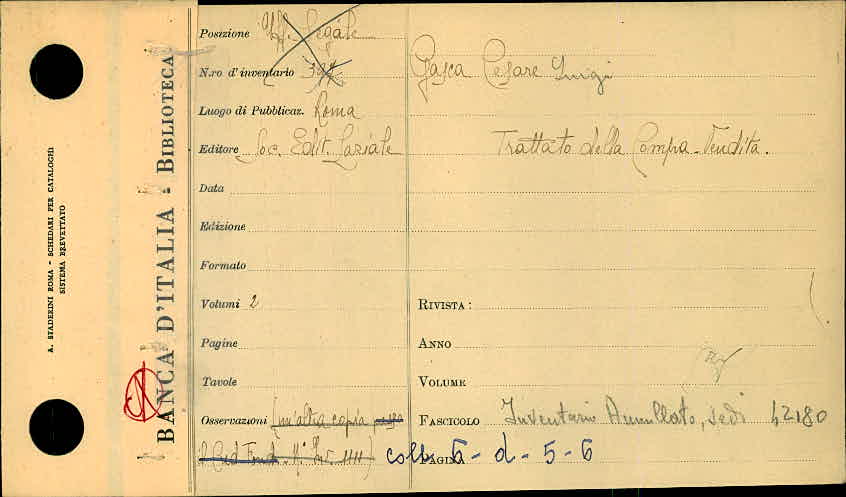 A. STADERINI ROMA - SCHEDARI PER CATALOGHI
SISTEMA BREVETTATO
BANCA D'ITALIA - BIBLIOTECA
Posizione Uff. Legale
N.ro d'inventario
Luogo di Pubblicaz. Roma
Editore Soc. Edit. Laziale
Data
Edizione
Formato
Volumi 2
Pagine
Tavole
Osservazioni (un'altra copia
Gasca Cesare Luigi
Trattato della Compra-Vendita.
RIVISTA:
ANNO
VOLUME
FASCICOLO Inventario Annullato, vedi 42180
PAGINA
coll. 5-d-5-6